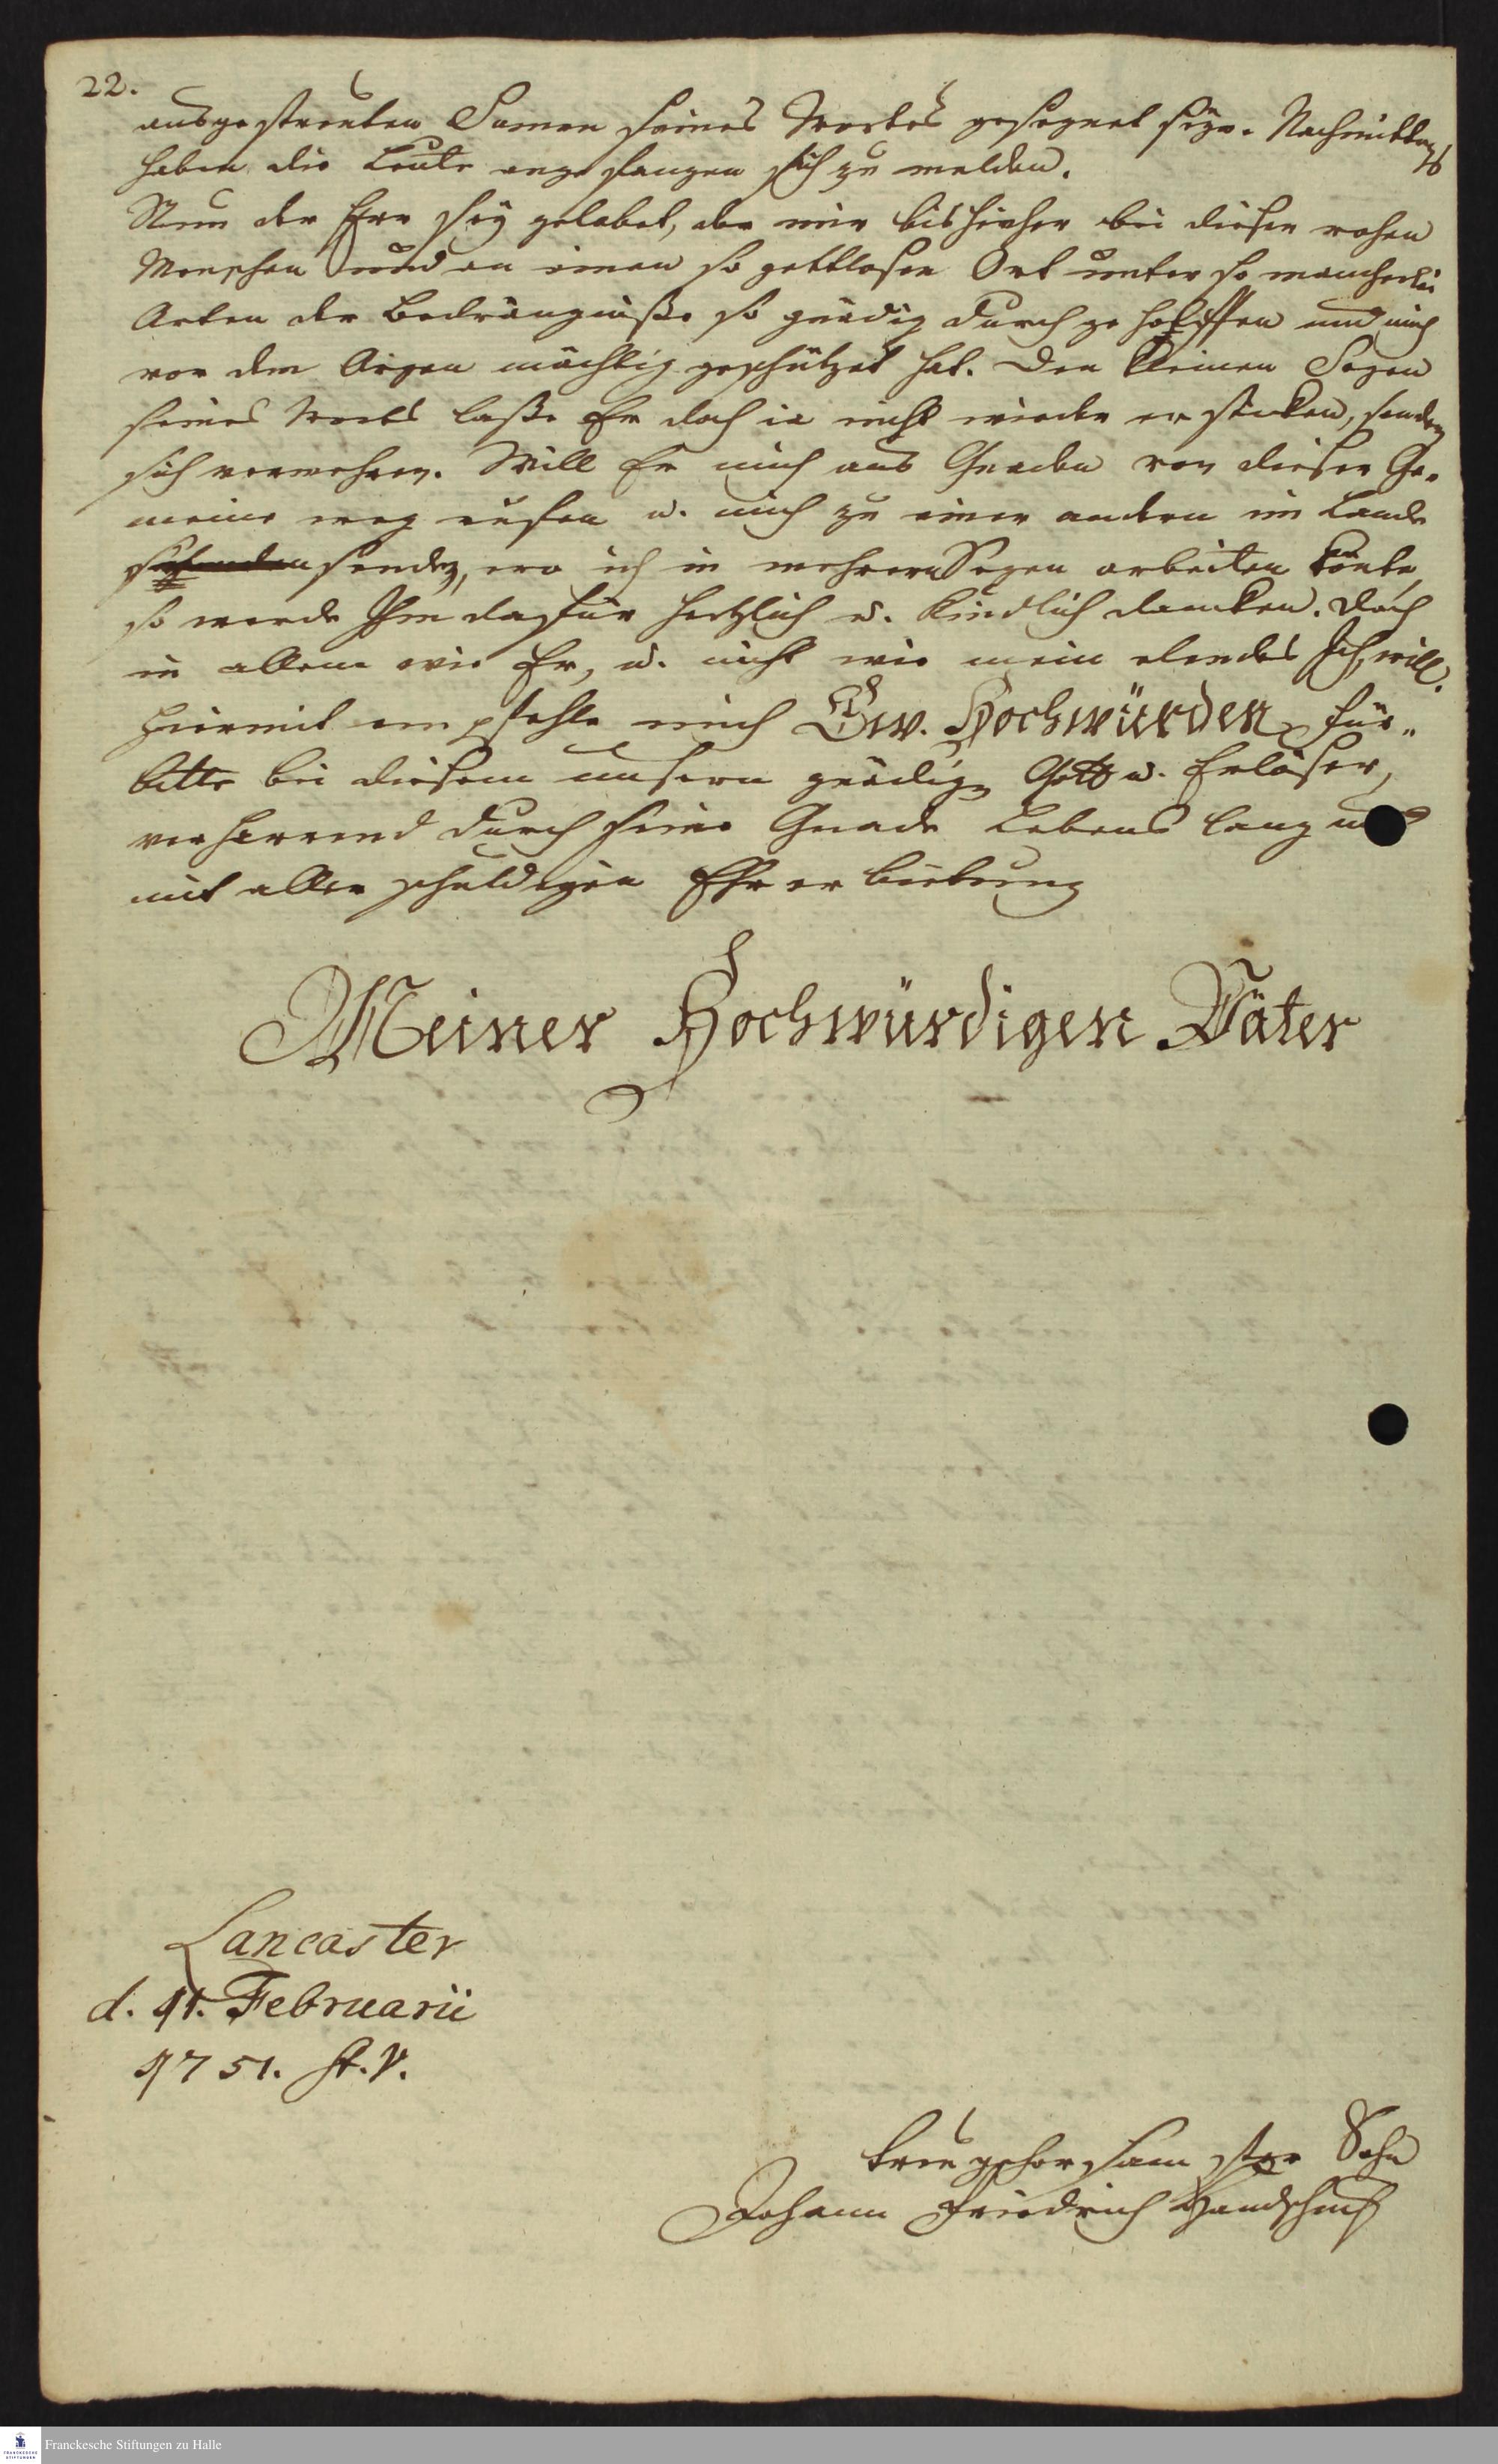 22.
ausgestreuten Samen seines Wortes gesegnet seyn. Nachmittags
haben die Leute angefangen sich zu melden.
Nun der Herr sey gelobet, der mir bishieher bei diesen rohen
Menschen und an einem so gottlosen Ort unter so mancherlei
Arten der Bedrängnisse so gnädig durch geholffen und mich
vor dem Argen mächtig geschützet hat. Den kleinen Segen
seines Worts lasse Er doch ja nicht wieder ersticken, sondern
sich vermehren. Will Er mich aus Gnaden von dieser Ge-
meine weg rufen u. mich zu einer andern im Lande
senden, wo ich in mehrern Segen arbeiten könte,
so werde Ihm dafür hertzlich u. kindlich dancken. Doch
in allem wie Er, u. nicht wie mein elendes Ich, will.
Hiermit empfehle mich Ew. Hochwürden Für-
bitte bei diesem unserm gnädigen Gott u. Erlöser,
verharrend durch seine Gnade Lebens lang und
mit aller schuldigen Ehrerbietung
Meiner Hochwürdigen Väter
Lancaster
d. 11. Februarii
1751. st. v.
treugehorsamster Sohn
Johann Friedrich Handschuch
Franckesche Stiftungen zu Halle